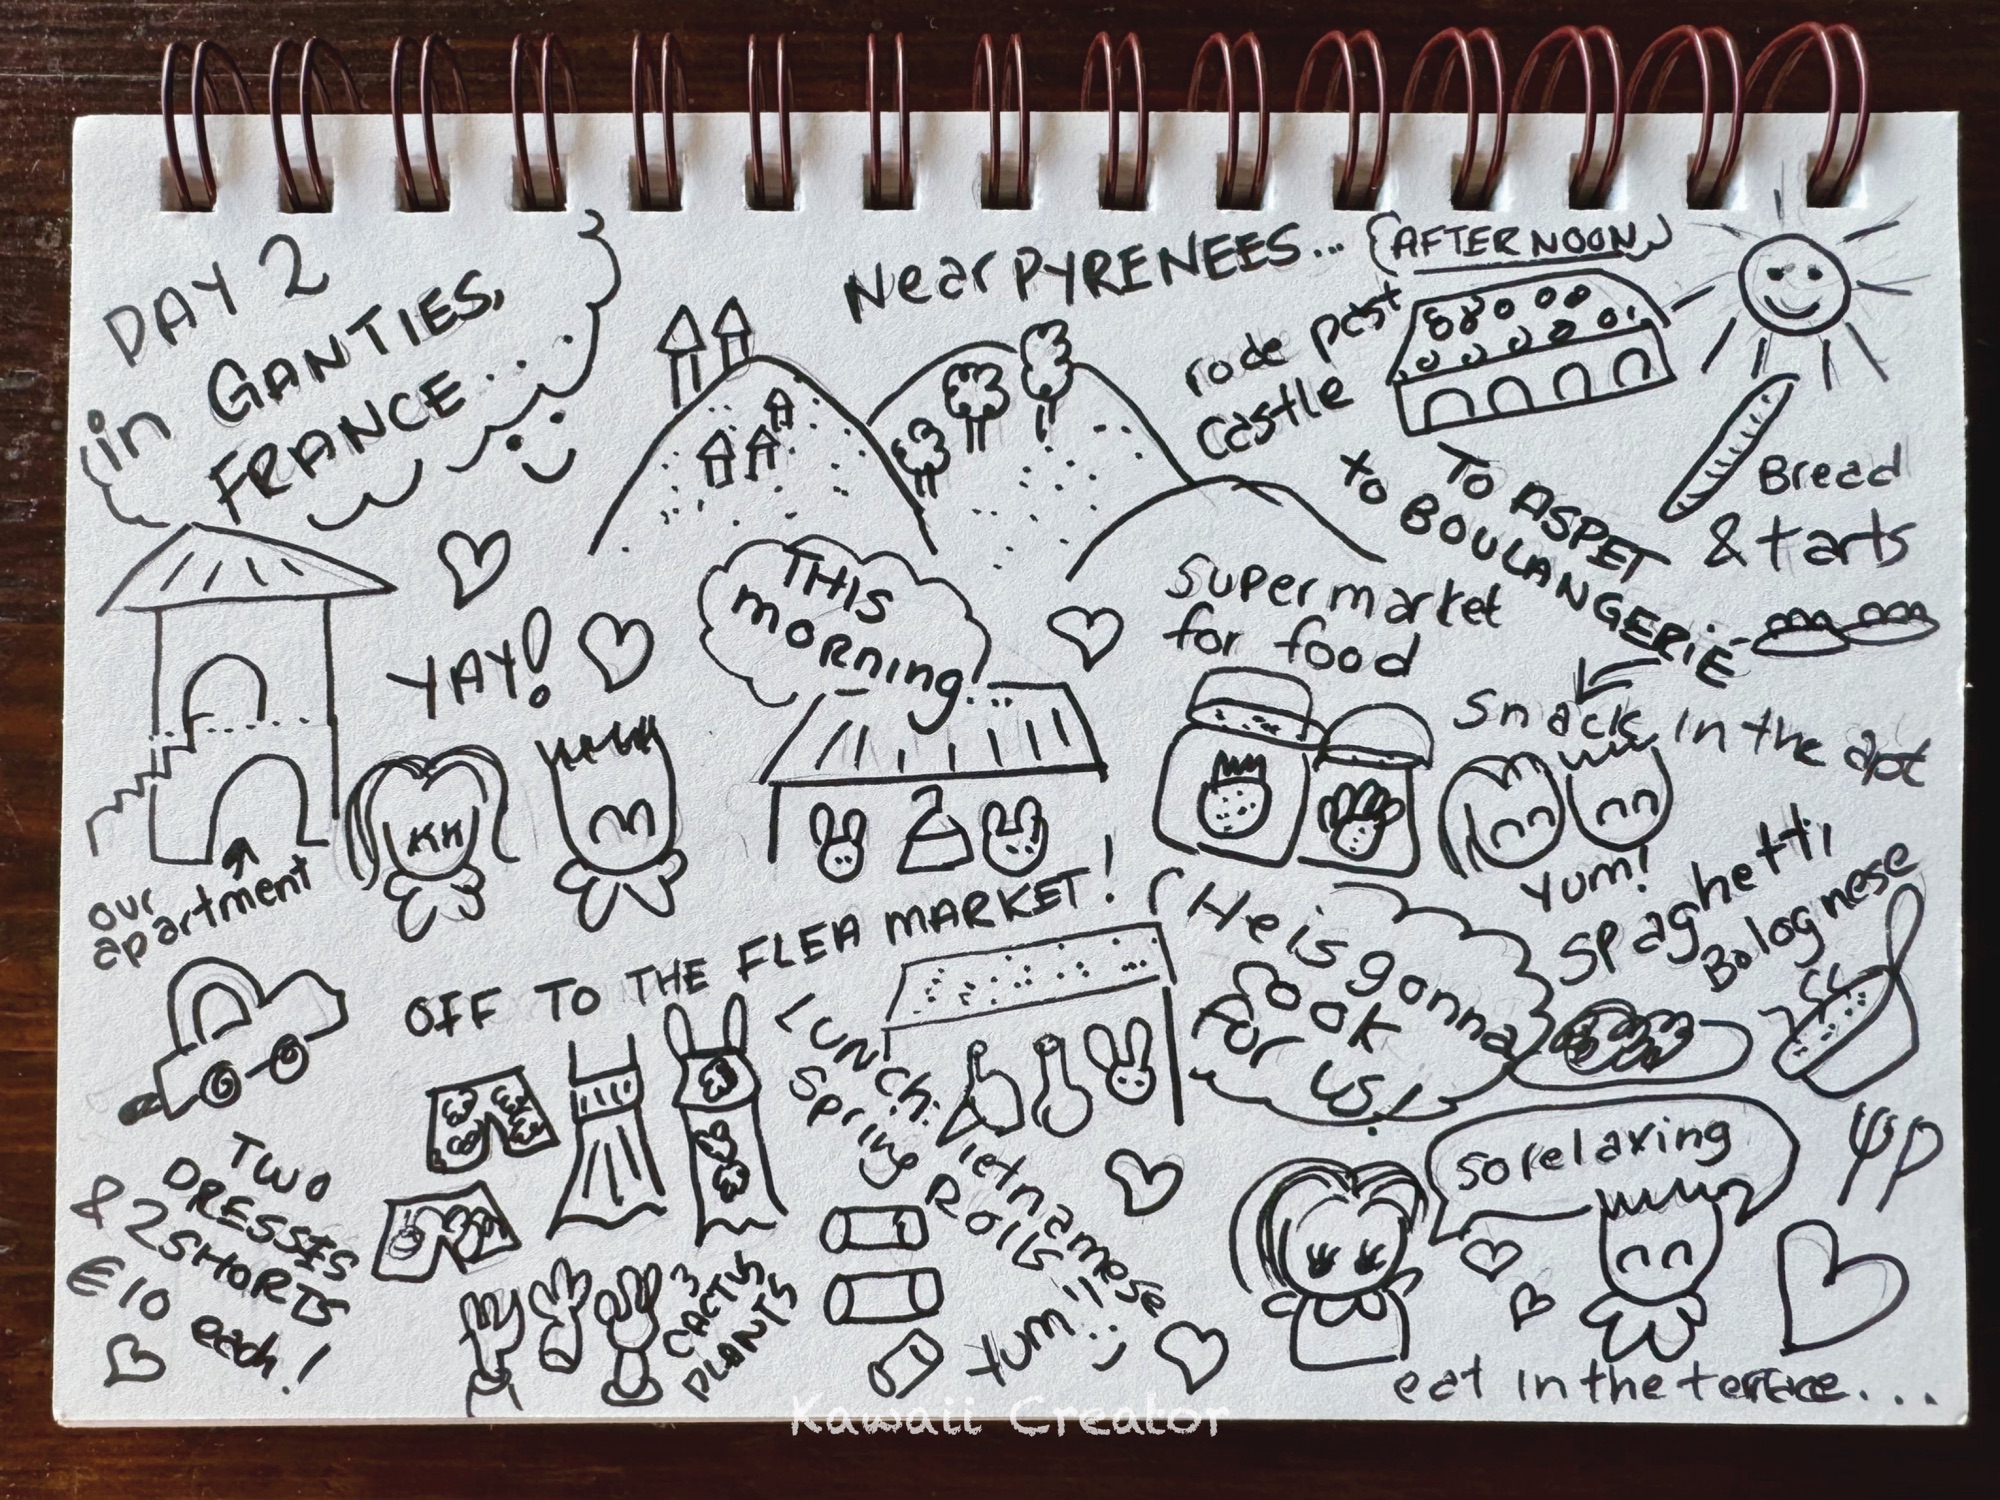 DAY 2
in GANTIES,
FRANCE...
Near PYRENEES...
(AFTERNOON)
rode past
castle
TO ASPET
to BOULANGERIE
Bread
& tarts
Supermarket
for food
Snack in the apt
Yum!
THIS
morning...
YAY!
our
apartment
OFF TO THE FLEA MARKET!
TWO
DRESSES
& 2 SHORTS
€10 each!
3
CACTUS
PLANTS
LUNCH: Vietnamese
Spring Rolls
Yum!!
He is gonna
cook
for us!
Spaghetti
Bolognese
so relaxing
eat in the terrace...
Kawaii Creator